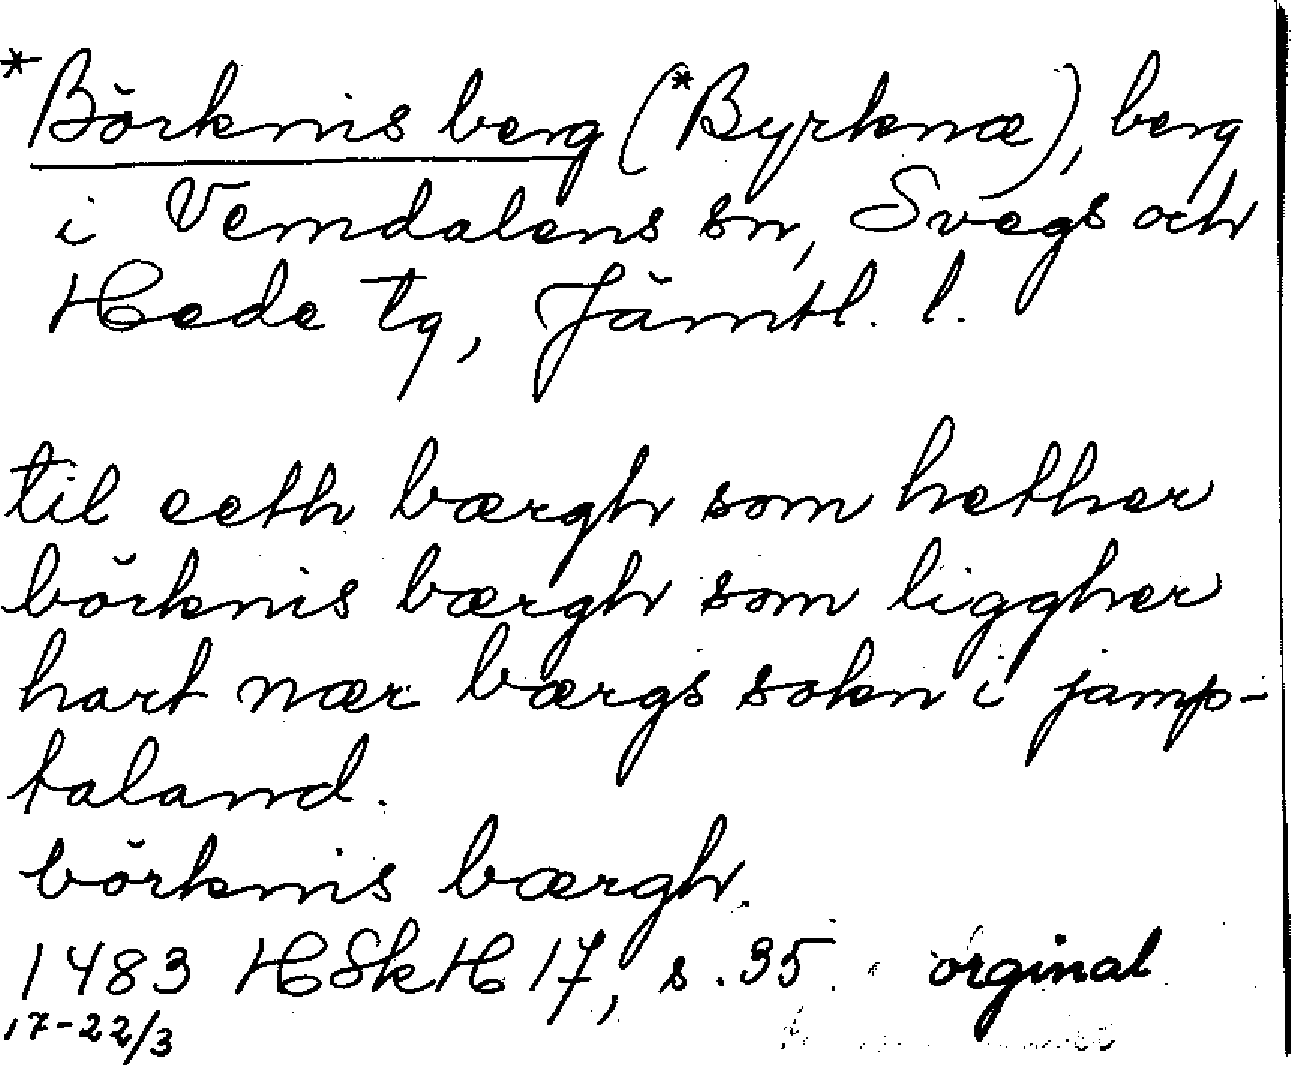 *Börknis berg (*Byrknæ), berg
i Vemdalens sn, Svegs och
Hede tg, Jämtl. l.
til eeth bærgh som hether
börknis bærgh som liggher
hart nær bærgs sokn i jamp-
taland.
börknis bærgh.
1483 HSkH 17, s. 35. orginal
17-22/3